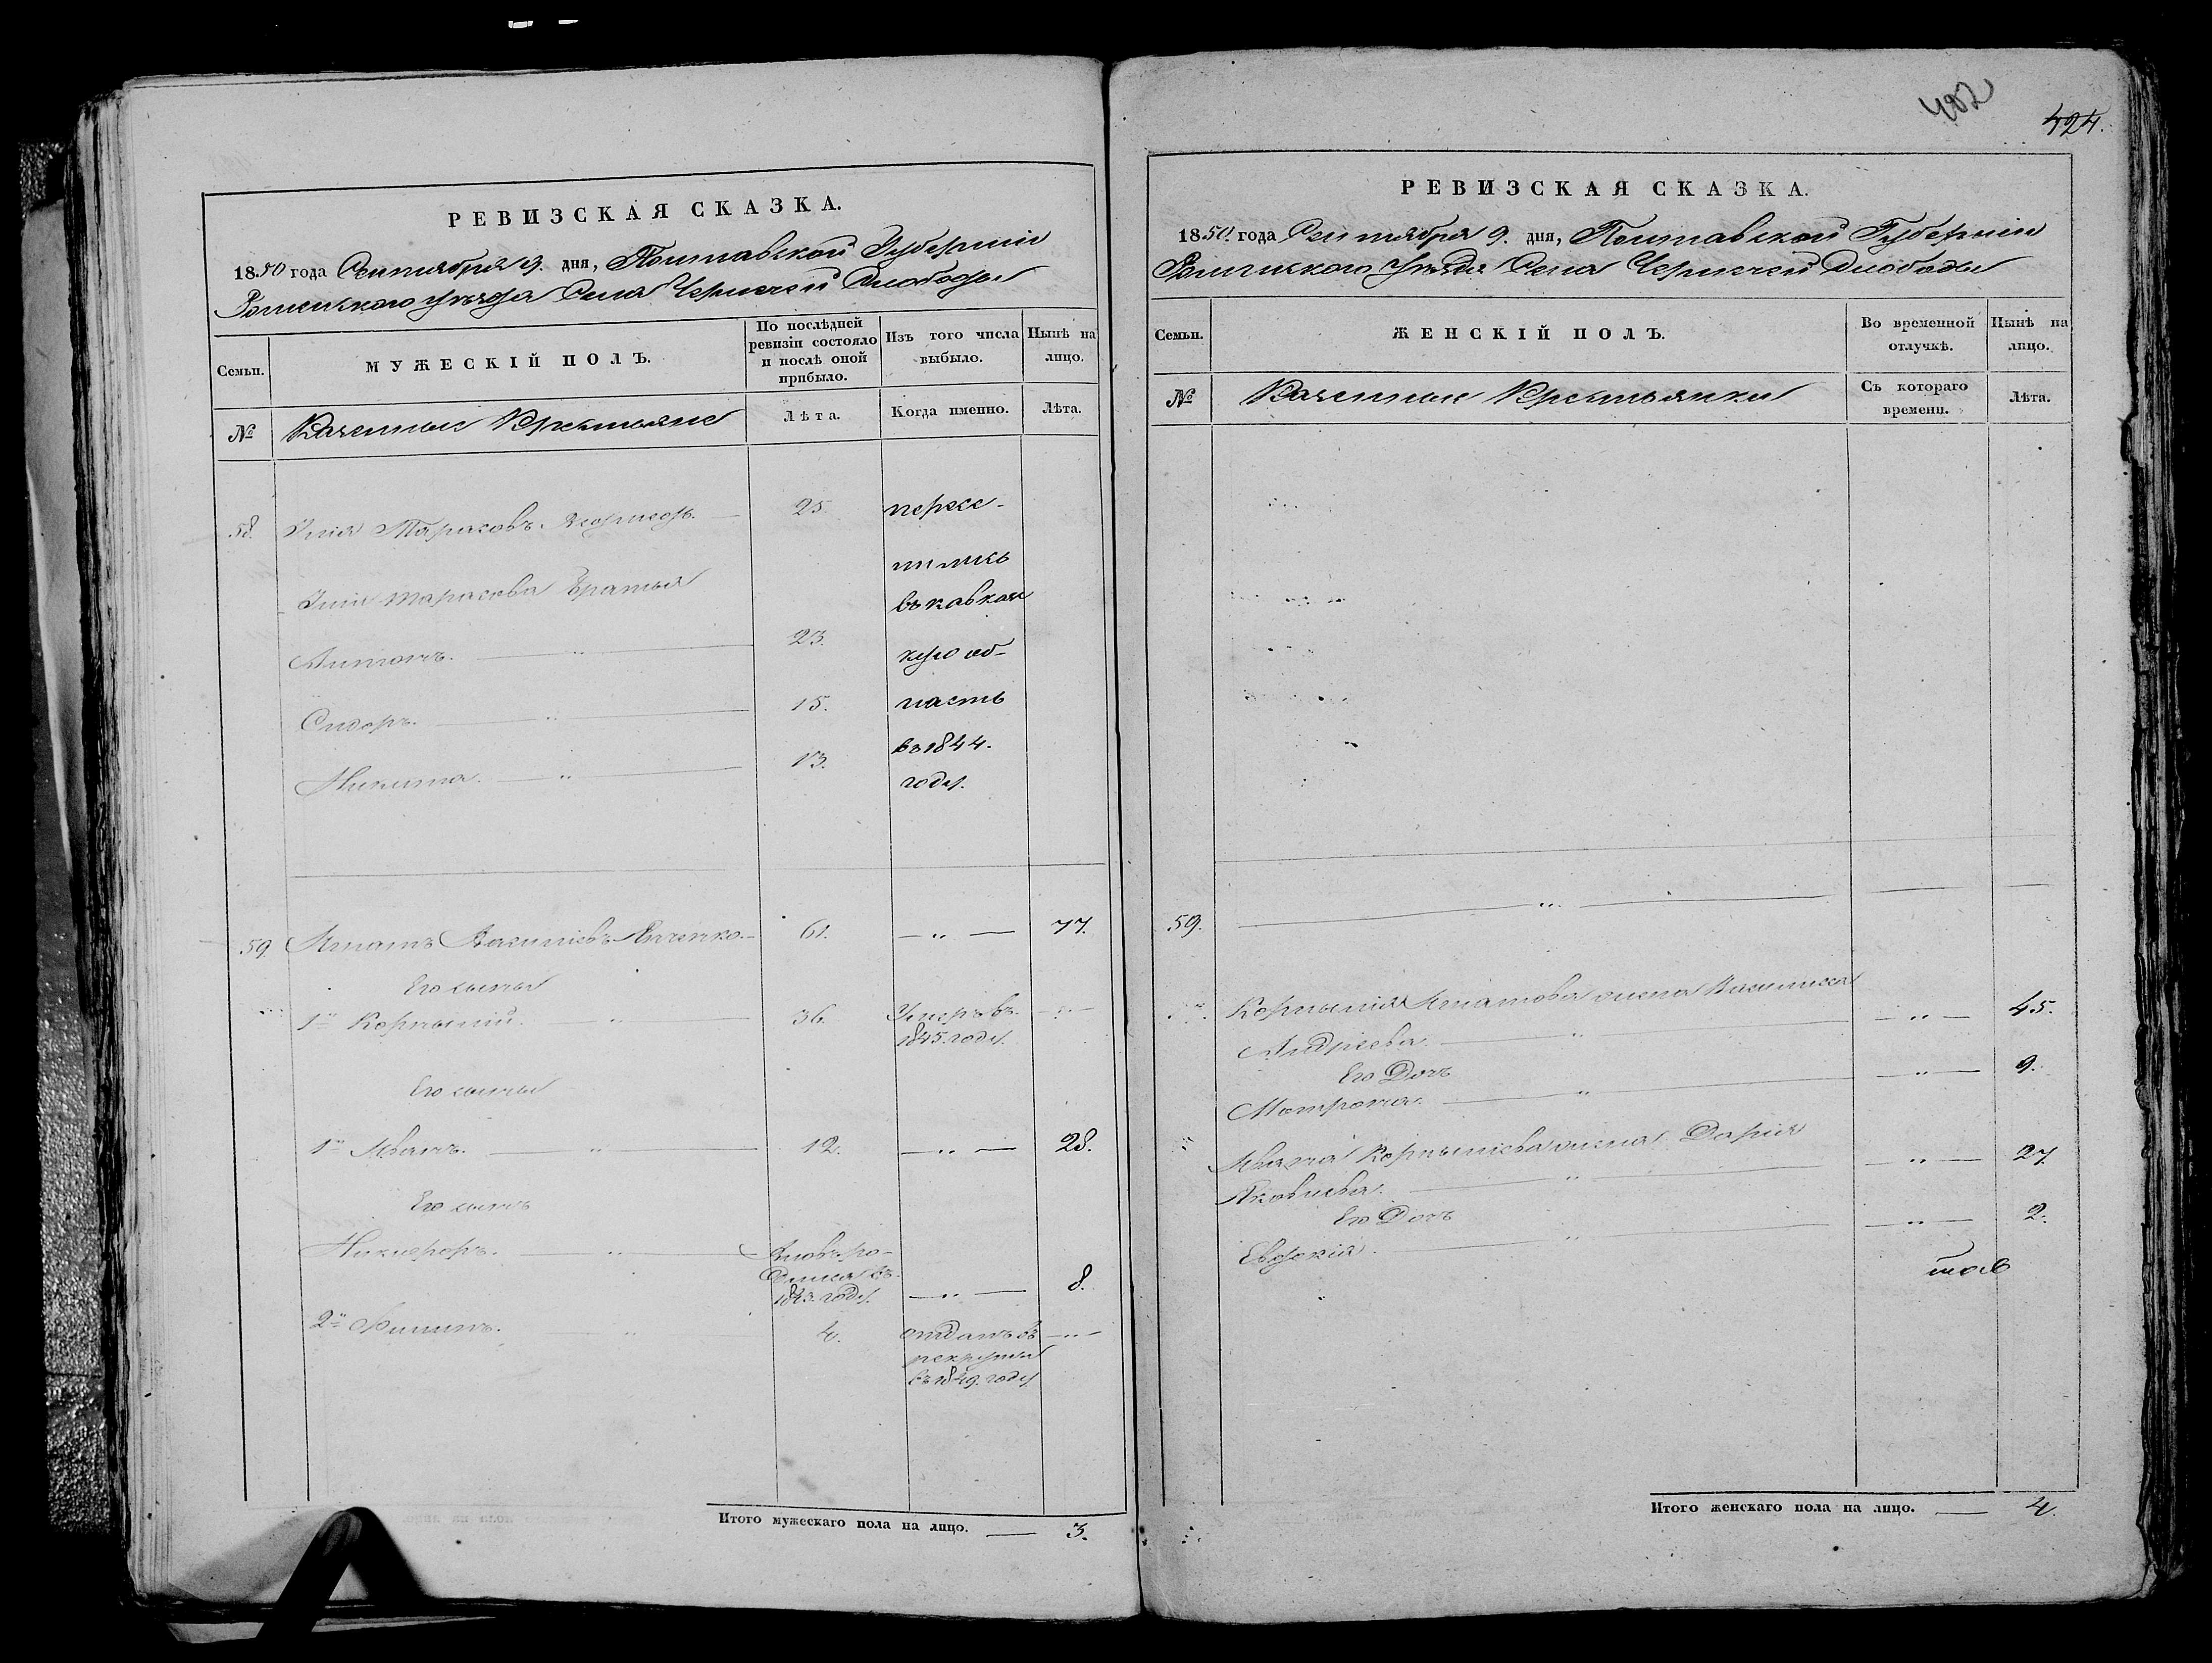 РЕВИЗСКАЯ СКАЗКА.
1850 года Сентября 9. дня, Полтавской Губернии
Роменского уезда Села Чернечей Слободы
Семьи.
МУЖЕСКІЙ ПОЛЪ.
По послѣдней ревизіи состояло и послѣ оной прибыло.
Изъ того числа выбыло.
Нынѣ на лицо.
№
Казенные Крестьяне
Лѣта.
Когда именно.
Лѣта.
58. Илія Тарасовъ. 25 пересе-
лились
Иліи Тарасова Братья въ кавказ
Антонъ. 23. кую об-
Сидоръ. 15. ласть
въ 1844.
Никита. 13. году.
59. Игнатъ Василіевъ 61. 77.
Его сыны
1й Корнылій. 36. Умеръ въ
1845. году.
Его сыны
1й Иванъ. 12. 28.
Его сынъ
Никифоръ. вновь ро-
дился въ
1843. году. 8.
2й Филипъ. 4. отданъ въ
рекруты
въ 1849. году
Итого мужескаго пола на лицо. 3.
482
424.
РЕВИЗСКАЯ СКАЗКА.
1850 года Сентября 9. дня, Полтавской Губернии
Роменского Уезда Села Чернечей Слободы
Семьи.
ЖЕНСКІЙ ПОЛЪ.
Во временной отлучкѣ.
Нынѣ на лицо.
№
Казенные Крестьянки
Съ котораго времени.
Лѣта.
59.
Корнылія Игнатова жена Василиса
Андреева. 45.
Его Дочь
Мотрона. 9.
Ивана Корныліева жена Дарія
Яковлева. 27.
Его Дочь
Евдокія. 2.
Итого женскаго пола на лицо. 4.